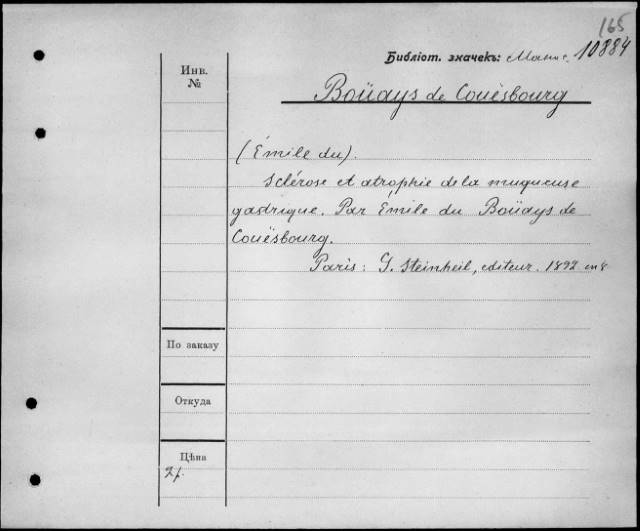 165
Библіот. значекъ: 10884
Инв.
№
Boüays de Couësbourg
(Émile du).
Sclérose et atrophie de la muqueuse
gastrique. Par Émile du Boüays de
Couësbourg.
Paris: G. Steinheil, editeur. 1892 in 8
По заказу
Откуда
Цѣна
2 f.